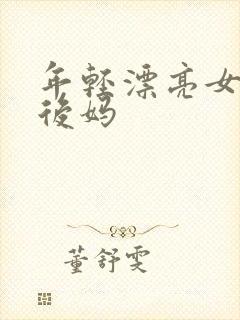 年轻漂亮女
後妈
董舒雯